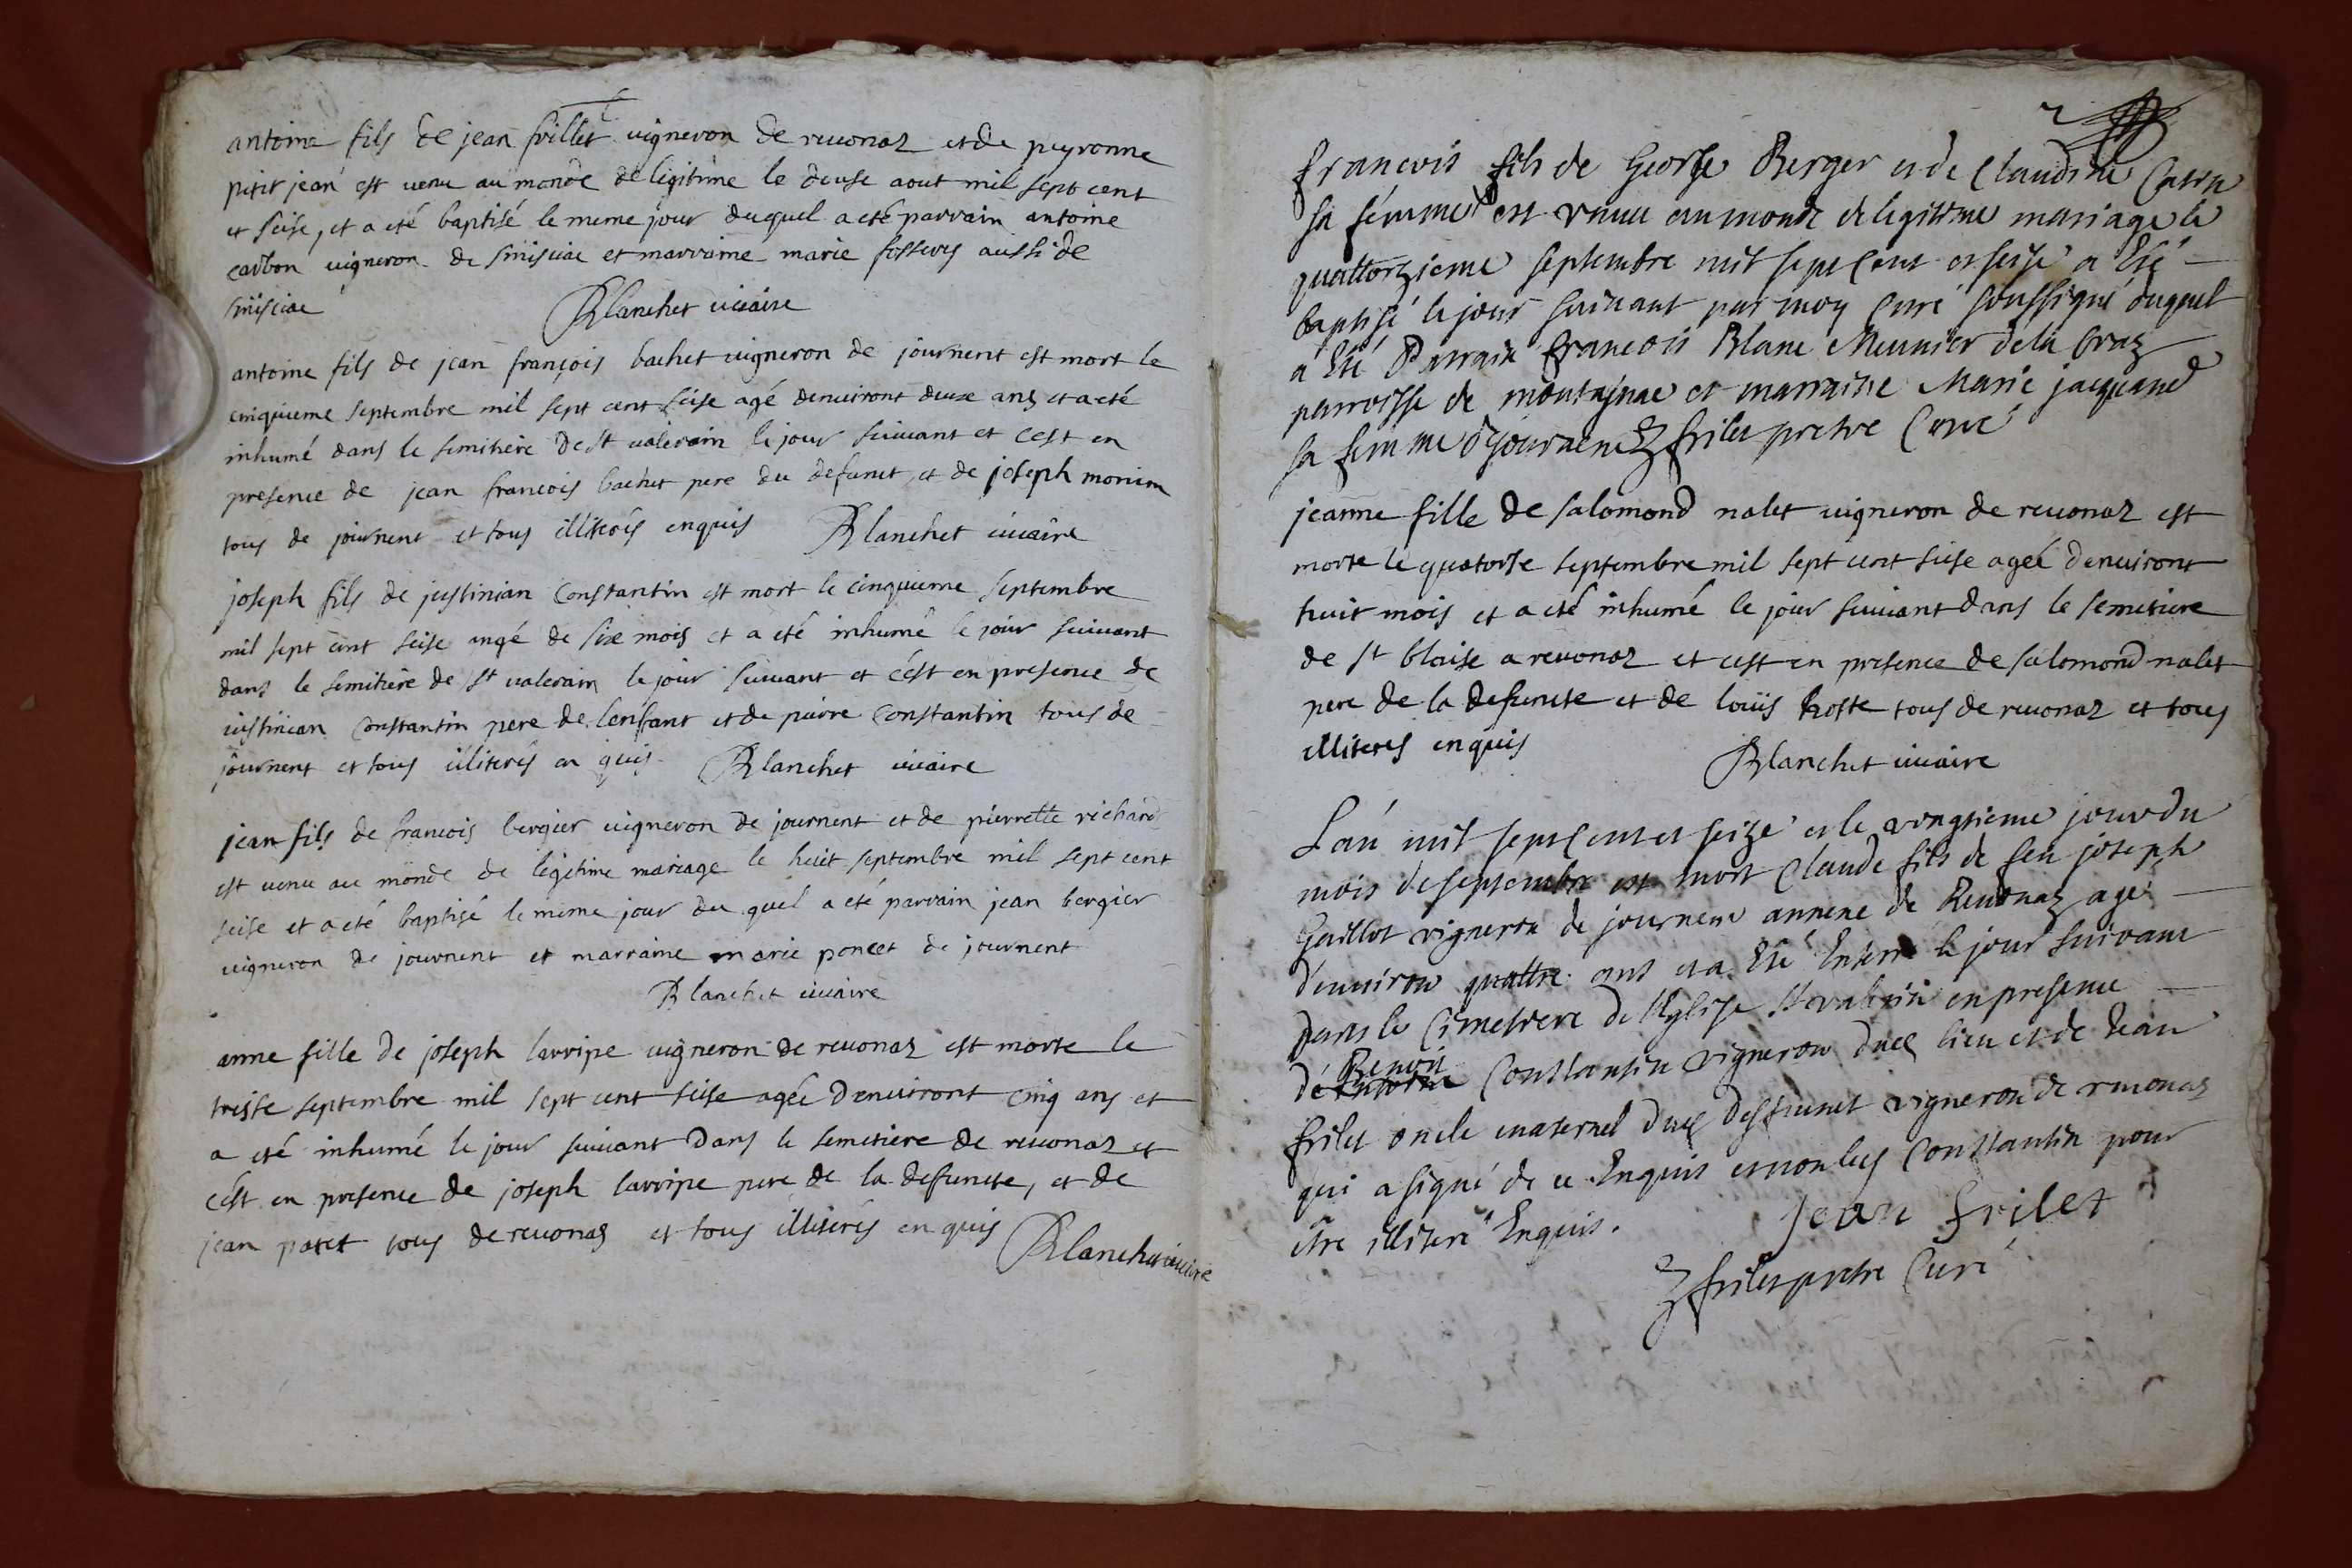 antoine fils de jean frillet vigneron de revonas et de peyronne
petit jean est venu au monde de ligitime le douse aout mil sept cent
et seise, et a eté baptisé le meme jour duquel a eté parrain antoine
carbon vigneron de smisciac et marraine marie aussi de
smisciac
Blanchet vicaire
antoine fils de jean françois bachet vigneron de journent est mort le
cinquieme septembre mil sept cent seise agé denviront deux ans et a eté
inhumé dans le semitiere de st valerain le jour suivant et cest en
presence de jean francois bachet pere du defunct, et de joseph monin
tous de journent et tous illiterés enquis Blanchet vicaire
joseph fils de justinian Constantin est mort le cinquieme septembre
mil sept cent seise angé de six mois et a eté inhumé le jour suivant
dans le semitiere de st valerain le jour suivant et c'est en presence de
justinian Constantin pere de lenfant et de pierre Constantin tous de
journent et tous illiterés en quis Blanchet vicaire
jean fils de francois bergier vigneron de journent et de pierrette richard
est venu au monde de legitime mariage le huit septembre mil sept cent
seise et a eté baptisé le meme jour du quel a eté parrain jean bergier
vigneron de journent et marraine marie poncet de journent
Blanchet vicaire
anne fille de joseph larripe vigneron de revonas est morte le
treise septembre mil sept cent seise agée denviront cinq ans et
a eté inhumé le jour suivant dans le semetiere de revonas et
c'est en presence de joseph larripe pere de la defuncte, et de
jean patet tous de revonas et tous illiterés en quis Blanchet vicaire
francois fils de George Berger et de Claudine
sa femme est venu au monde de legitime mariage le
quattorzieme septembre mil sept cent et seise a Eté
baptisé le jour suivant par moy Curé soussigné duquel
a Eté Parrain francois Blanc Meunier de la
parroisse de montagnac et marraine Marie jacquand
sa femme d journent frilet pretre Curé
jeanne fille de salomond nalet vigneron de revonas est
morte le quatorse septembre mil sept cent seise ageé denviront
huit mois et a eté inhumé le jour suivant dans le semetiere
de st blaise a revonas et cest en presence de salomond nalet
pere de la defuncte et de louis hoste tous de revonas et tous
illiterés enquis
Blanchet vicaire
L'an mil sept cent et seize et le vingtieme jour du
mois de septembre est mort Claude fils de feu joseph
Guillot vigneron de journent annexe de Revonaz agé
d'environ quattre ans et a Eté Enterré le jour suivant
dans le Cimetiere de l'Eglise St valerin en presence
de Benoit Constantin vigneron dud lieu et de Jean
frilet oncle maternel dud deffunct vigneron de revonas
qui a signé de ce Enquis et non led Constantin pour
etre illiteré Enquis.
Jean frilet
frilet pretre Curé